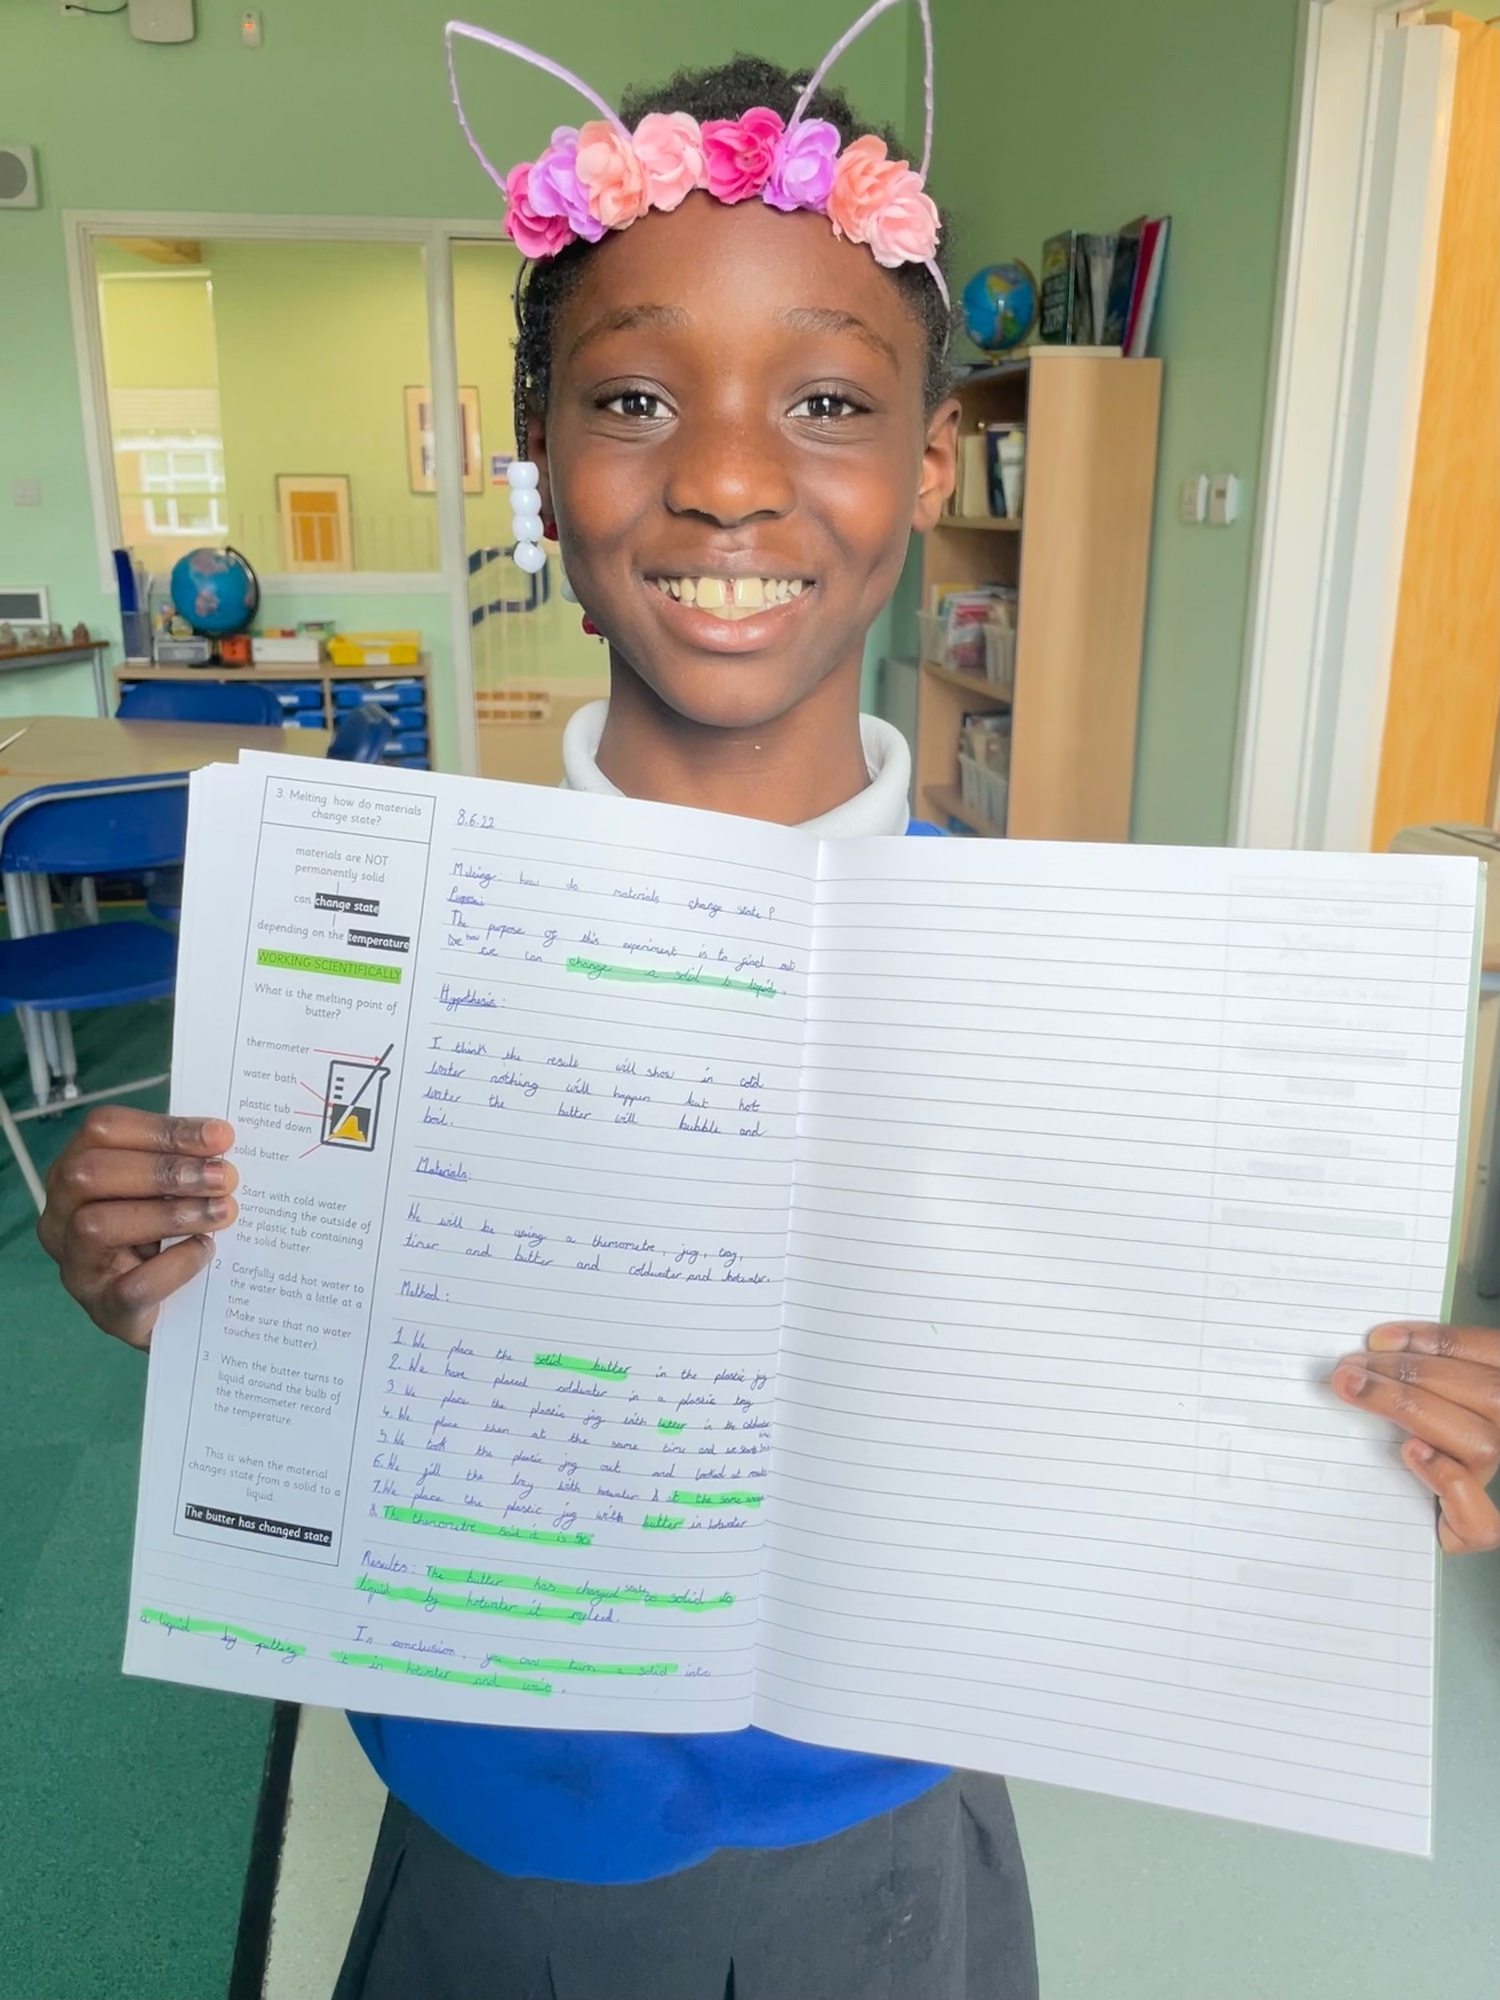 3. Melting: how do materials
change state?
materials are NOT
permanently solid
can change state
depending on the temperature
WORKING SCIENTIFICALLY
What is the melting point of
butter?
thermometer
water bath
plastic tub
weighted down
solid butter
Start with cold water
surrounding the outside of
the plastic tub containing
the solid butter.
2 Carefully add hot water to
the water bath a little at a
time
(Make sure that no water
touches the butter)
3 When the butter turns to
liquid around the bulb of
the thermometer record
the temperature.
This is when the material
changes state from a solid to a
liquid.
The butter has changed state.
8.6.22
Melting: how do materials change state?
Purpose:
The purpose of this experiment is to find out
how we can change a solid to liquid.
Hypothesis:
I think the result will show in cold
water nothing will happen but hot
water the butter will bubble and
boil.
Materials:
We will be using a thermometre, jug, tray,
timer and butter and coldwater and hotwater.
Method:
1. We place the solid butter in the plastic jug
2. We have placed coldwater in a plastic tray
3. We place the plastic jug with butter in the
4. We place them at the same time and we
5. We took the plastic jug out and looked at
6. We fill the tray with hotwater at the same
7. We place the plastic jug with butter in hotwater
8. The thermometre said it is
Results: The butter has changed state solid to
liquid by hotwater it melted.
In conclusion, you can turn a solid into
a liquid by putting it in hotwater and wait.